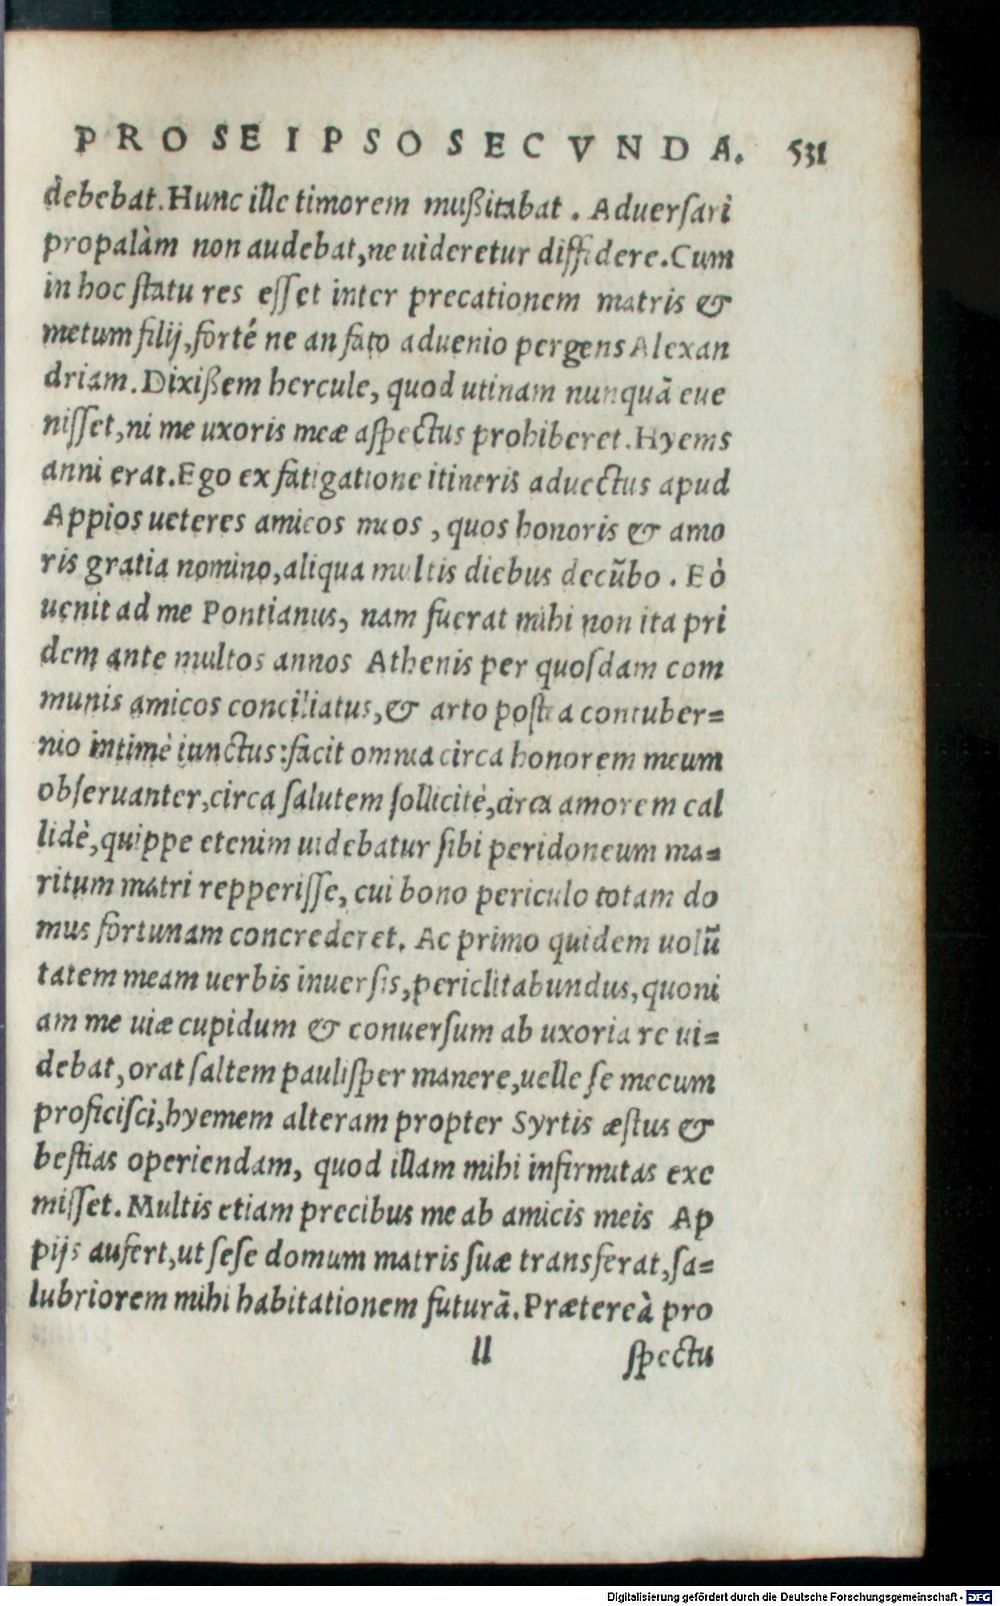 PRO SE IPSO SECVNDA. 531
debebat. Hunc ille timorem mußitabat. Aduersari
propalàm non audebat, ne uideretur diffidere. Cum
in hoc ſtatu res eſſet inter precationem matris &
metum filij, forté ne an fato aduenio pergens Alexan
driam. Dixißem hercule, quod utinam nunquā eue
niſſet, ni me uxoris meæ aſpectus prohiberet. Hyems
anni erat. Ego ex fatigatione itineris aduectus apud
Appios ueteres amicos meos, quos honoris & amo
ris gratia nomino, aliqua multis diebus decūbo. Eò
uenit ad me Pontianus, nam fuerat mihi non ita pri
dem ante multos annos Athenis per quoſdam com
munis amicos conciliatus, & arto poſtea contuber=
nio intimè iunctus: facit omnia circa honorem meum
obſeruanter, circa ſalutem ſollicitè, circa amorem cal
lidè, quippe etenim uidebatur ſibi peridoneum ma=
ritum matri repperiſſe, cui bono periculo totam do
mus fortunam concrederet. Ac primo quidem uolū
tatem meam uerbis inuerſis, periclitabundus, quoni
am me uiæ cupidum & conuerſum ab uxoria re ui=
debat, orat ſaltem pauliſper manere, uelle ſe mecum
proficiſci, hyemem alteram propter Syrtis æſtus &
beſtias operiendam, quod illam mihi infirmitas exe
miſſet. Multis etiam precibus me ab amicis meis Ap
pijs aufert, ut ſeſe domum matris ſuæ transferat, ſa=
lubriorem mihi habitationem futurā. Prætereà pro
ll ſpectu
Digitalisierung gefördert durch die Deutsche Forschungsgemeinschaft - DFG